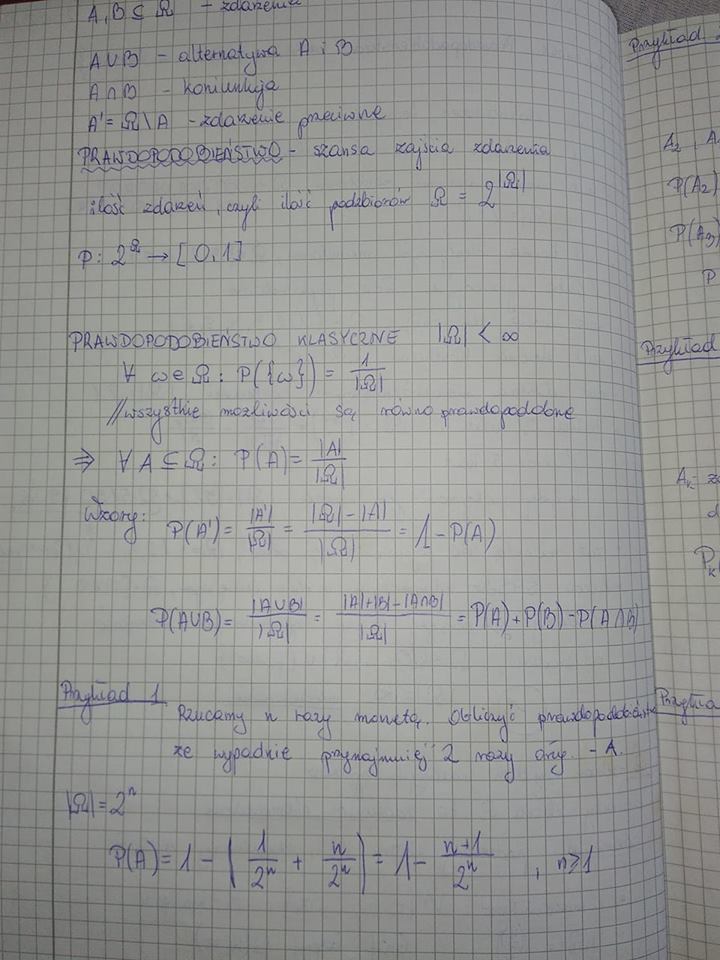 A, B ⊆ Ω – zdarzenia
A∪B – alternatywa A i B
A∩B – koniunkcja
A' = Ω\A – zdarzenie przeciwne
PRAWDOPODOBIEŃSTWO – szansa zajścia zdarzenia
ilość zdarzeń, czyli ilość podzbiorów Ω = 2^|Ω|
P: 2^Ω → [0,1]
PRAWDOPODOBIEŃSTWO KLASYCZNE |Ω| < ∞
∀ ω∈Ω: P({ω}) = 1/|Ω|
//wszystkie możliwości są równo prawdopodobne
⇒ ∀ A⊆Ω: P(A) = |A|/|Ω|
Wzory:
P(A') = |A'|/|Ω| = (|Ω|-|A|)/|Ω| = 1-P(A)
P(A∪B) = |A∪B|/|Ω| = (|A|+|B|-|A∩B|)/|Ω| = P(A)+P(B)-P(A∩B)
Przykład 1
Rzucamy n razy monetą. Obliczyć prawdopodobieństwo
że wypadnie przynajmniej 2 razy orzy. – A.
|Ω| = 2^n
P(A) = 1 - (1/2^n + n/2^n) = 1 - (n+1)/2^n , n≥1
Przykład
A₂
P(A₂)
P(A₃)
P
Przykład
Pk(